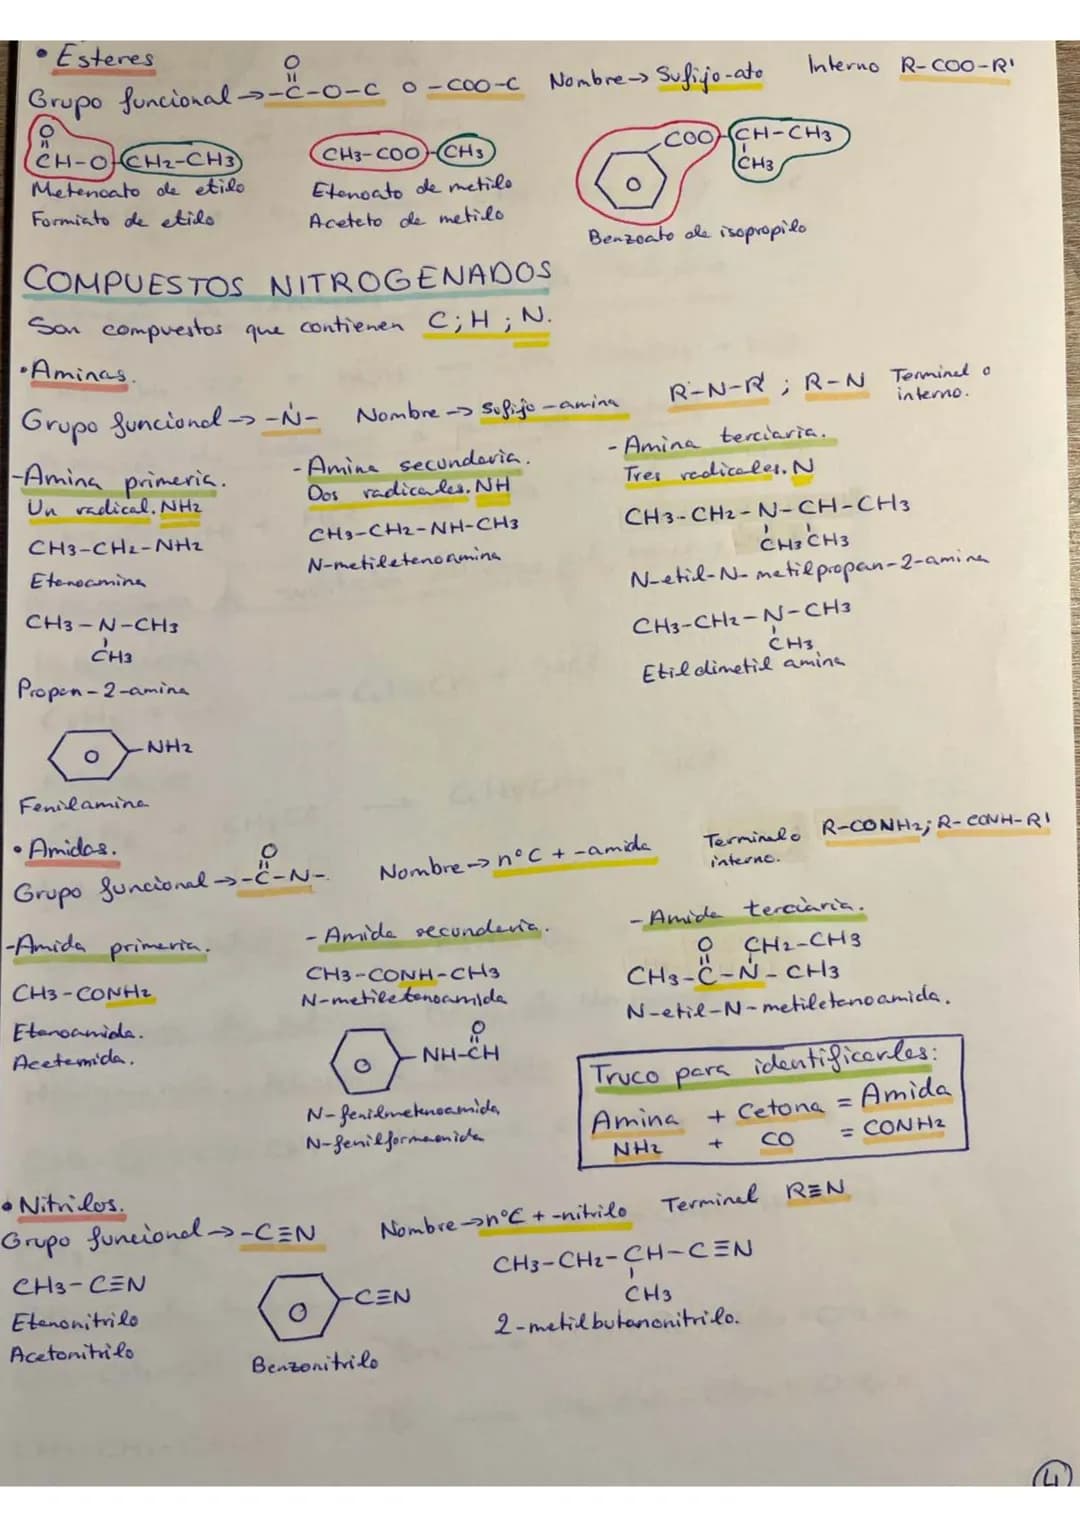 • Esteres
Grupo funcional → -C(=O)-O-C o -COO-C Nombre → Sufijo-ato Interno R-COO-R'
O
CH-O-CH2-CH3
Metanoato de etilo
Formiato de etilo
CH3-COO-CH3
Etanoato de metilo
Acetato de metilo
COO-CH-CH3
CH3
Benzoato de isopropilo
COMPUESTOS NITROGENADOS
Son compuestos que contienen C; H; N.
• Aminas.
Grupo funcional → -N- Nombre → Sufijo -amina R-N-R'; R-N Terminal o interno.
-Amina primaria.
Un radical. NH2
CH3-CH2-NH2
Etanoamina
CH3-N-CH3
CH3
Propan-2-amina
-NH2
Fenilamina
-Amina secundaria.
Dos radicales. NH
CH3-CH2-NH-CH3
N-metiletanoamina
-Amina terciaria.
Tres radicales. N
CH3-CH2-N-CH-CH3
CH3 CH3
N-etil-N-metilpropan-2-amina
CH3-CH2-N-CH3
CH3
Etildimetil amina
• Amidas.
Grupo funcional → -C(=O)-N- Nombre → nºC + -amida Terminal o interno. R-CONH2; R-CONH-R'
-Amida primaria.
CH3-CONH2
Etanoamida.
Acetamida.
-Amida secundaria.
CH3-CONH-CH3
N-metiletanoamida
O
-NH-CH
N-fenilmetanoamida
N-fenilformamida
-Amida terciaria.
O CH2-CH3
CH3-C-N-CH3
N-etil-N-metiletanoamida.
Truco para identificarles:
Amina + Cetona = Amida
NH2 + CO = CONH2
• Nitrilos.
Grupo funcional → -C≡N Nombre → nºC + -nitrilo Terminal R≡N
CH3-C≡N
Etanonitrilo
Acetonitrilo
-C≡N
Benzonitrilo
CH3-CH2-CH-C≡N
CH3
2-metilbutanonitrilo.
4